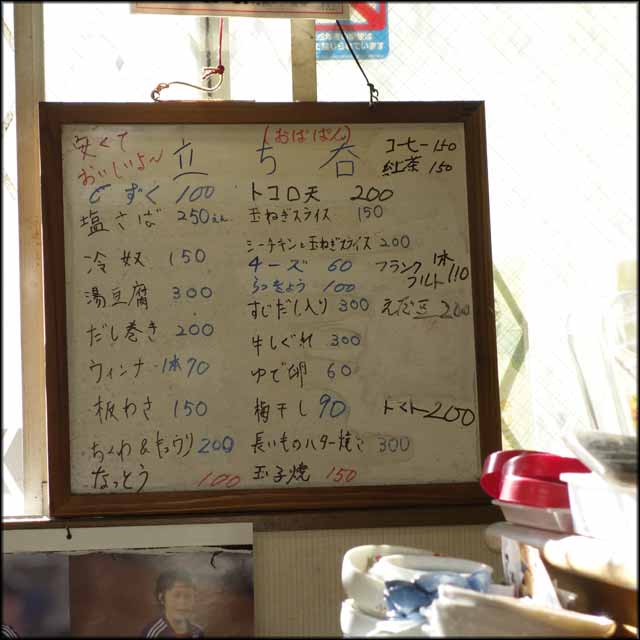 安くて
おいしいよ～
(おばぱん)
立ち呑
コーヒー 150
紅茶 150
もずく 100
トコロ天 200
塩さば 250えん
玉ねぎスライス 150
シーチキンと玉ねぎスライス 200
冷奴 150
チーズ 60
フランクフルト 1本 110
らっきょう 100
湯豆腐 300
すじだし入り 300
えだ豆 200
だし巻き 200
牛しぐれ 300
ウィンナー 1本 70
ゆで卵 60
板わさ 150
梅干し 90
トマト 200
ちくわ&キュウリ 200
長いものバター焼き 300
なっとう 100
玉子焼 150